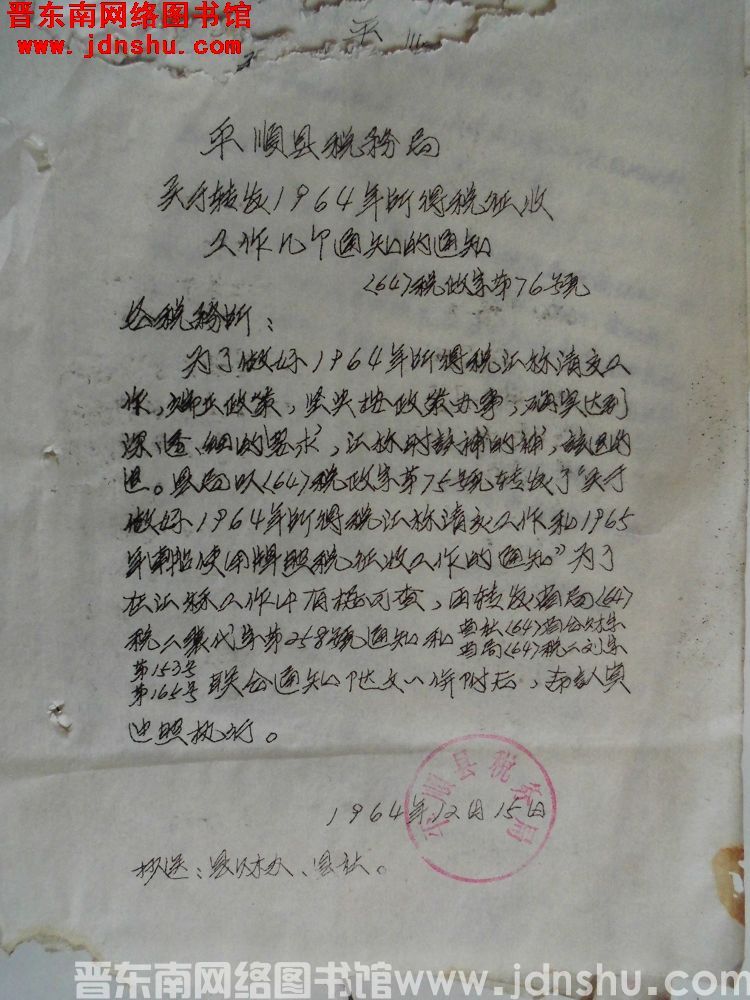 晋东南网络图书馆
www.jdnshu.com
平
平順县税務局
关于转发1964年所得税征收
工作几个通知的通知
(64)税政字第76号
各税務所：
为了做好1964年所得税汇标清交工
作，端正政策，坚决按政策办事，确实达到
深、透、细的要求，汇标时該補的補，該退的
退。县局以(64)税政字第75号转发了“关于
做好1964年所得税汇标清交工作和1965
年車船使用牌照税征收工作的通知”为了
在汇标工作中有据可查，函转发省局(64)
税工集代字第258號通知和
省社(64)省合财字
省局(64)税工列字
第153号
第165号
联合通知 文一併附后，希認真
遵照执行。
平順县税务局
1964年12月15日
抄送：县财办、县社。
晋东南网络图书馆www.jdnshu.com